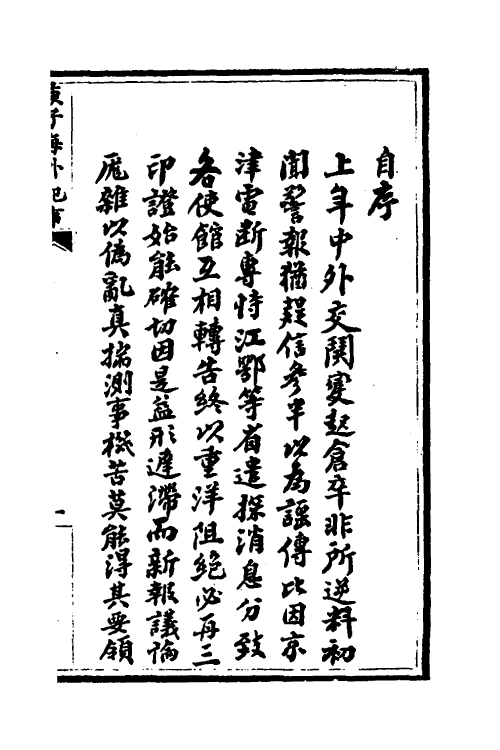 自序
上年中外交鬨變起倉卒非所逆料初
聞警報猶疑信參半以為謡傳比因京
津電断專恃江鄂等省遣探消息分致
各使館互相轉告終以重洋阻絕必再三
印證始能確切因是益形遲滯而新報議論
厖雜以偽亂真揣測事機苦莫能得其要領
庚子海外紀事
一